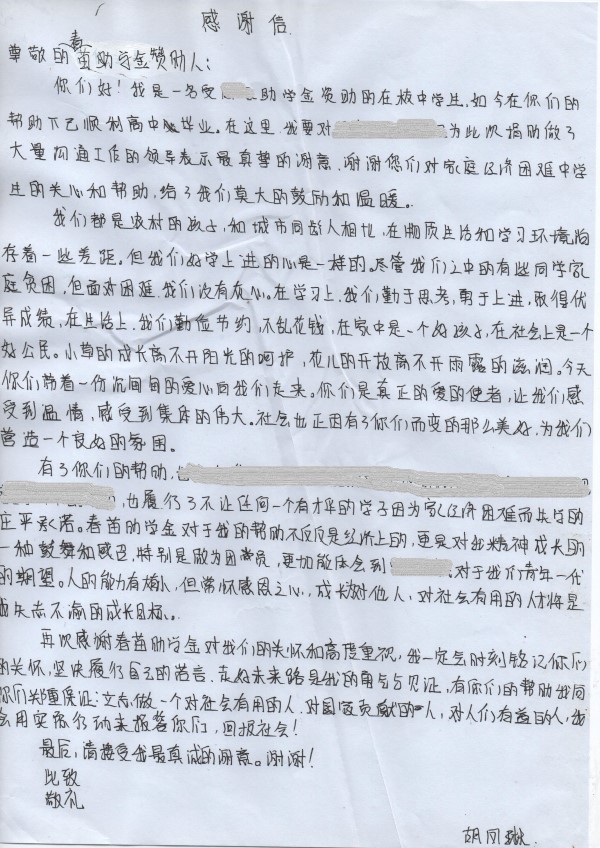 感谢信
尊敬的春苗助学金赞助人:
你们好!我是一名受 助学金资助的在校中学生,如今在你们的
帮助下已顺利高中毕业。在这里,我要对 为此次捐助做了
大量沟通工作的领导表示最真挚的谢意,谢谢您们对家庭经济困难中学
生的关心和帮助,给了我们莫大的鼓励和温暖。
我们都是农村的孩子,和城市同龄人相比,在物质生活和学习环境尚
存着一些差距。但我们好学上进的心是一样的。尽管我们之中的有些同学家
庭贫困,但面对困难,我们没有灰心。在学习上,我们勤于思考,勇于上进,取得优
异成绩,在生活上,我们勤俭节约,不乱花钱,在家中是一个好孩子,在社会上是一个
好公民。小草的成长离不开阳光的呵护,花儿的开放离不开雨露的滋润。今天
你们带着一份沉甸甸的爱心向我们走来。你们是真正的爱的使者,让我们感
受到温情,感受到集体的伟大。社会也正因有了你们而变的那么美好,为我们
营造一个良好的氛围。
有了你们的帮助,
,也履行了不让任何一个有才华的学子因为家庭经济困难而失学的
庄严承诺。春苗助学金对于我的帮助不仅仅是经济上的,更是对我精神成长的
一种鼓舞和感召,特别是做为团员,更加能体会到 对于我们青年一代
的期望。人的能力有大小,但常怀感恩之心,成长对他人,对社会有用的人才将是
我矢志不渝的成长目标。
再次感谢春苗助学金对我们的关怀和高度重视,我一定会时刻铭记你们
的关怀,坚决履行自己的诺言,走好未来路是我的勇气与见证,有你们的帮助我向
你们郑重保证:立志,做一个对社会有用的人,对国家贡献的人,对人们有益的人,我
会用实际行动来报答你们,回报社会!
最后,请接受我最真诚的谢意。谢谢!
此致
敬礼